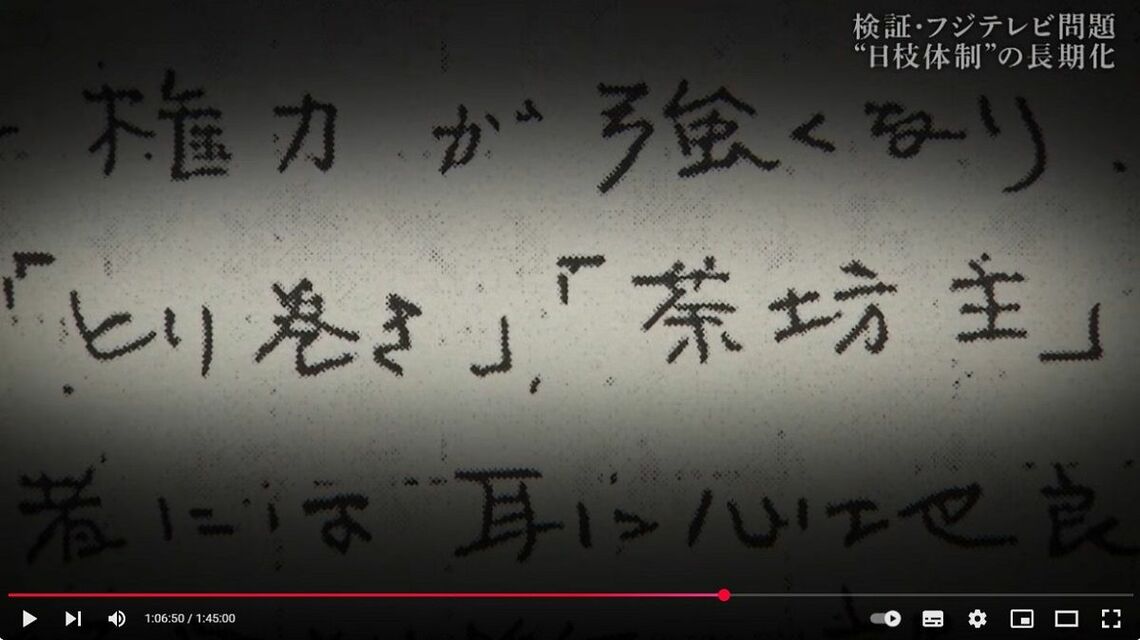 検証・フジテレビ問題
“日枝体制”の長期化
権力が強くなり
「とり巻き」、「茶坊主」
者には耳に心地良
1:06:50 / 1:45:00